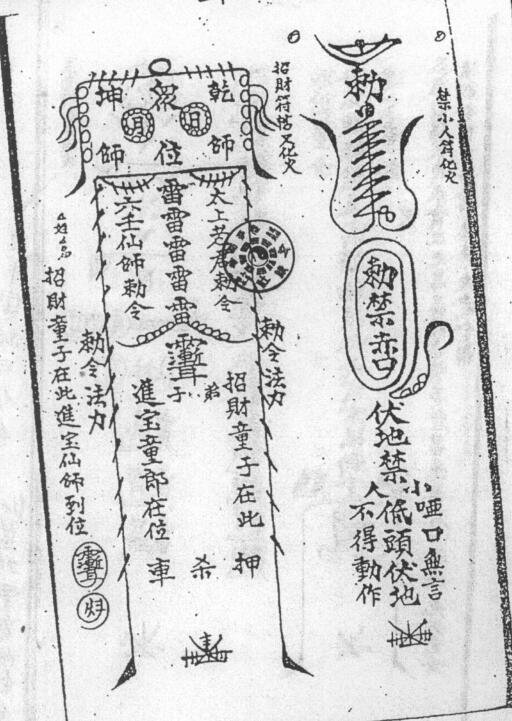 禁小人符化火
勅
勅禁赤口
伏地禁
小人
啞口無言
低頭伏地
不得動作
招財符搭文化火
乾 衆 坤
日 月
師 位 師
太上老君勅令
雷雷雷雷雷
六壬仙師勅令
勅令法力
勅令法力
弟子
招財童子在此
進宝童郎在位
押 杀 車
招財童子在此進宝仙師到位